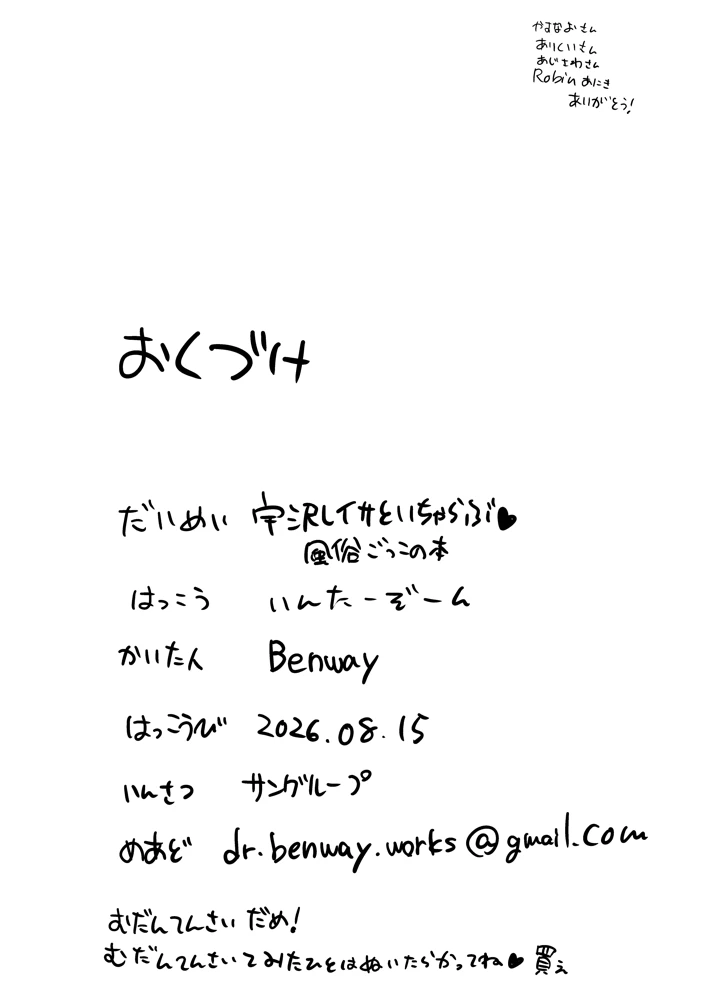 やまなおさん
ありくいさん
あじさわさん
Robinあにき
ありがとう!
おくづけ
だいめい 宇沢レイサといちゃらぶ♥
風俗ごっこの本
はっこう いんたーぞーん
かいたん Benway
はっこうび 2026.08.15
いんさつ サングループ
めあど dr.benway.works@gmail.com
むだんてんさいだめ!
むだんてんさいでみたひとはぬいたらかってね♥ 買え